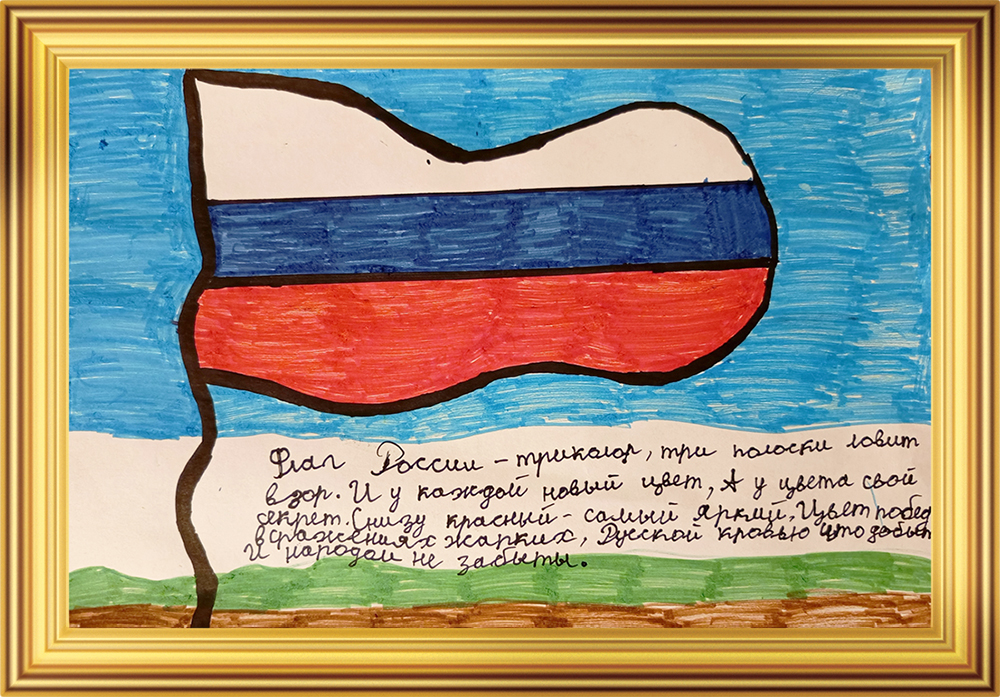 Флаг России - триколор, три полоски ловит
взор. И у каждой новый цвет, А у цвета свой
секрет. Снизу красный - самый яркий, Цвет побед
в сражениях жарких, Русской кровью что добыт
И народом не забыты.